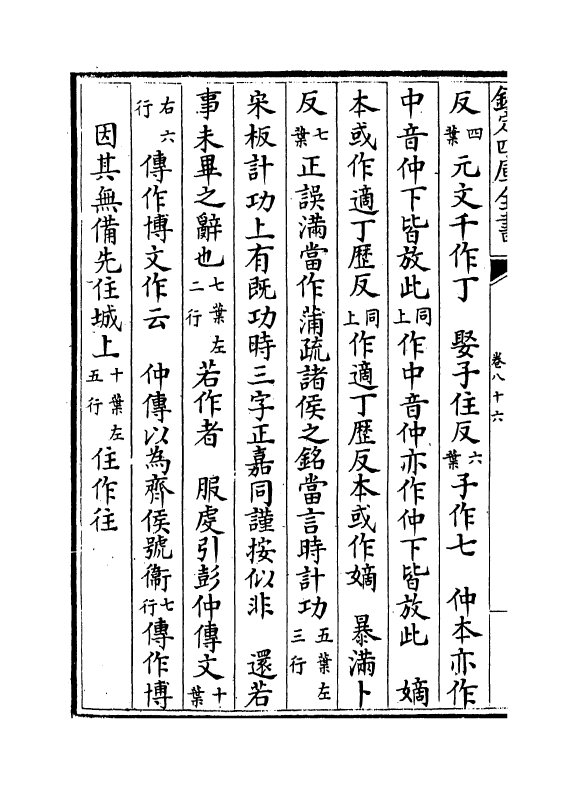 欽定四庫全書
卷八十六
反四葉元文千作丁　娶子住反六葉子作七　仲本亦作
中音仲下皆放此同上作中音仲亦作仲下皆放此　嫡
本或作適丁歷反同上作適丁歷反本或作嫡　暴滿卜
反七葉正誤滿當作蒲疏諸侯之銘當言時計功五葉左三行
宋板計功上有既功時三字正嘉同謹按似非　還若
事未畢之辭也七葉左二行若作者　服虔引彭仲傳文十葉
右六行傳作博文作云　仲傳以為齊侯號衞七行傳作博
因其無備先住城上十葉左五行住作往